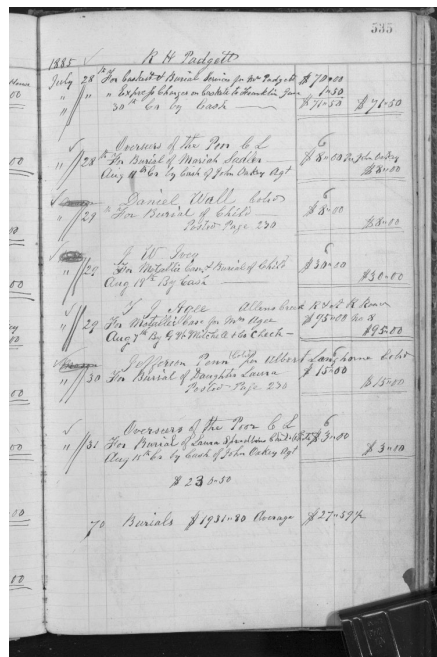 535
1885 R H Padgett
July 28th For Casket & Burial Services for Mrs Padgett $70=00
" " " Express Charges on Casket to Franklin Junc 1=50
30th Cr by Cash $71=50 $71=50
Overseers of the Poor C L 6
" 28th For Burial of Mariah Sadler $8=00 Pr John Oakey
Aug 11th Cr by Cash of John Oakey Agt $8=00
Daniel Wall Cold 6
" 29th For Burial of Child $8=00
Posted Page 230 $8=00
G W Ivey 6
" 29 For Metallic Case & Burial of Child $30=00
Aug 18th By Cash $30=00
T J Agee Allens Creek R & A R Road
" 29 For Metallic Case for Mrs Agee $95=00 No 8
Aug 7th By G W Mitchell & Co Check $95=00
Jefferson Penn Cold for Albert Langhorne Cold
" 30 For Burial of Daughter Laura $15=00
Posted Page 230 $15=00
Overseers of the Poor C L 6
" 31 For Burial of Laura Child $3=00
Aug 11th Cr by Cash of John Oakey Agt $3=00
$230=50
70 Burials $1931=80 Average $27=59½